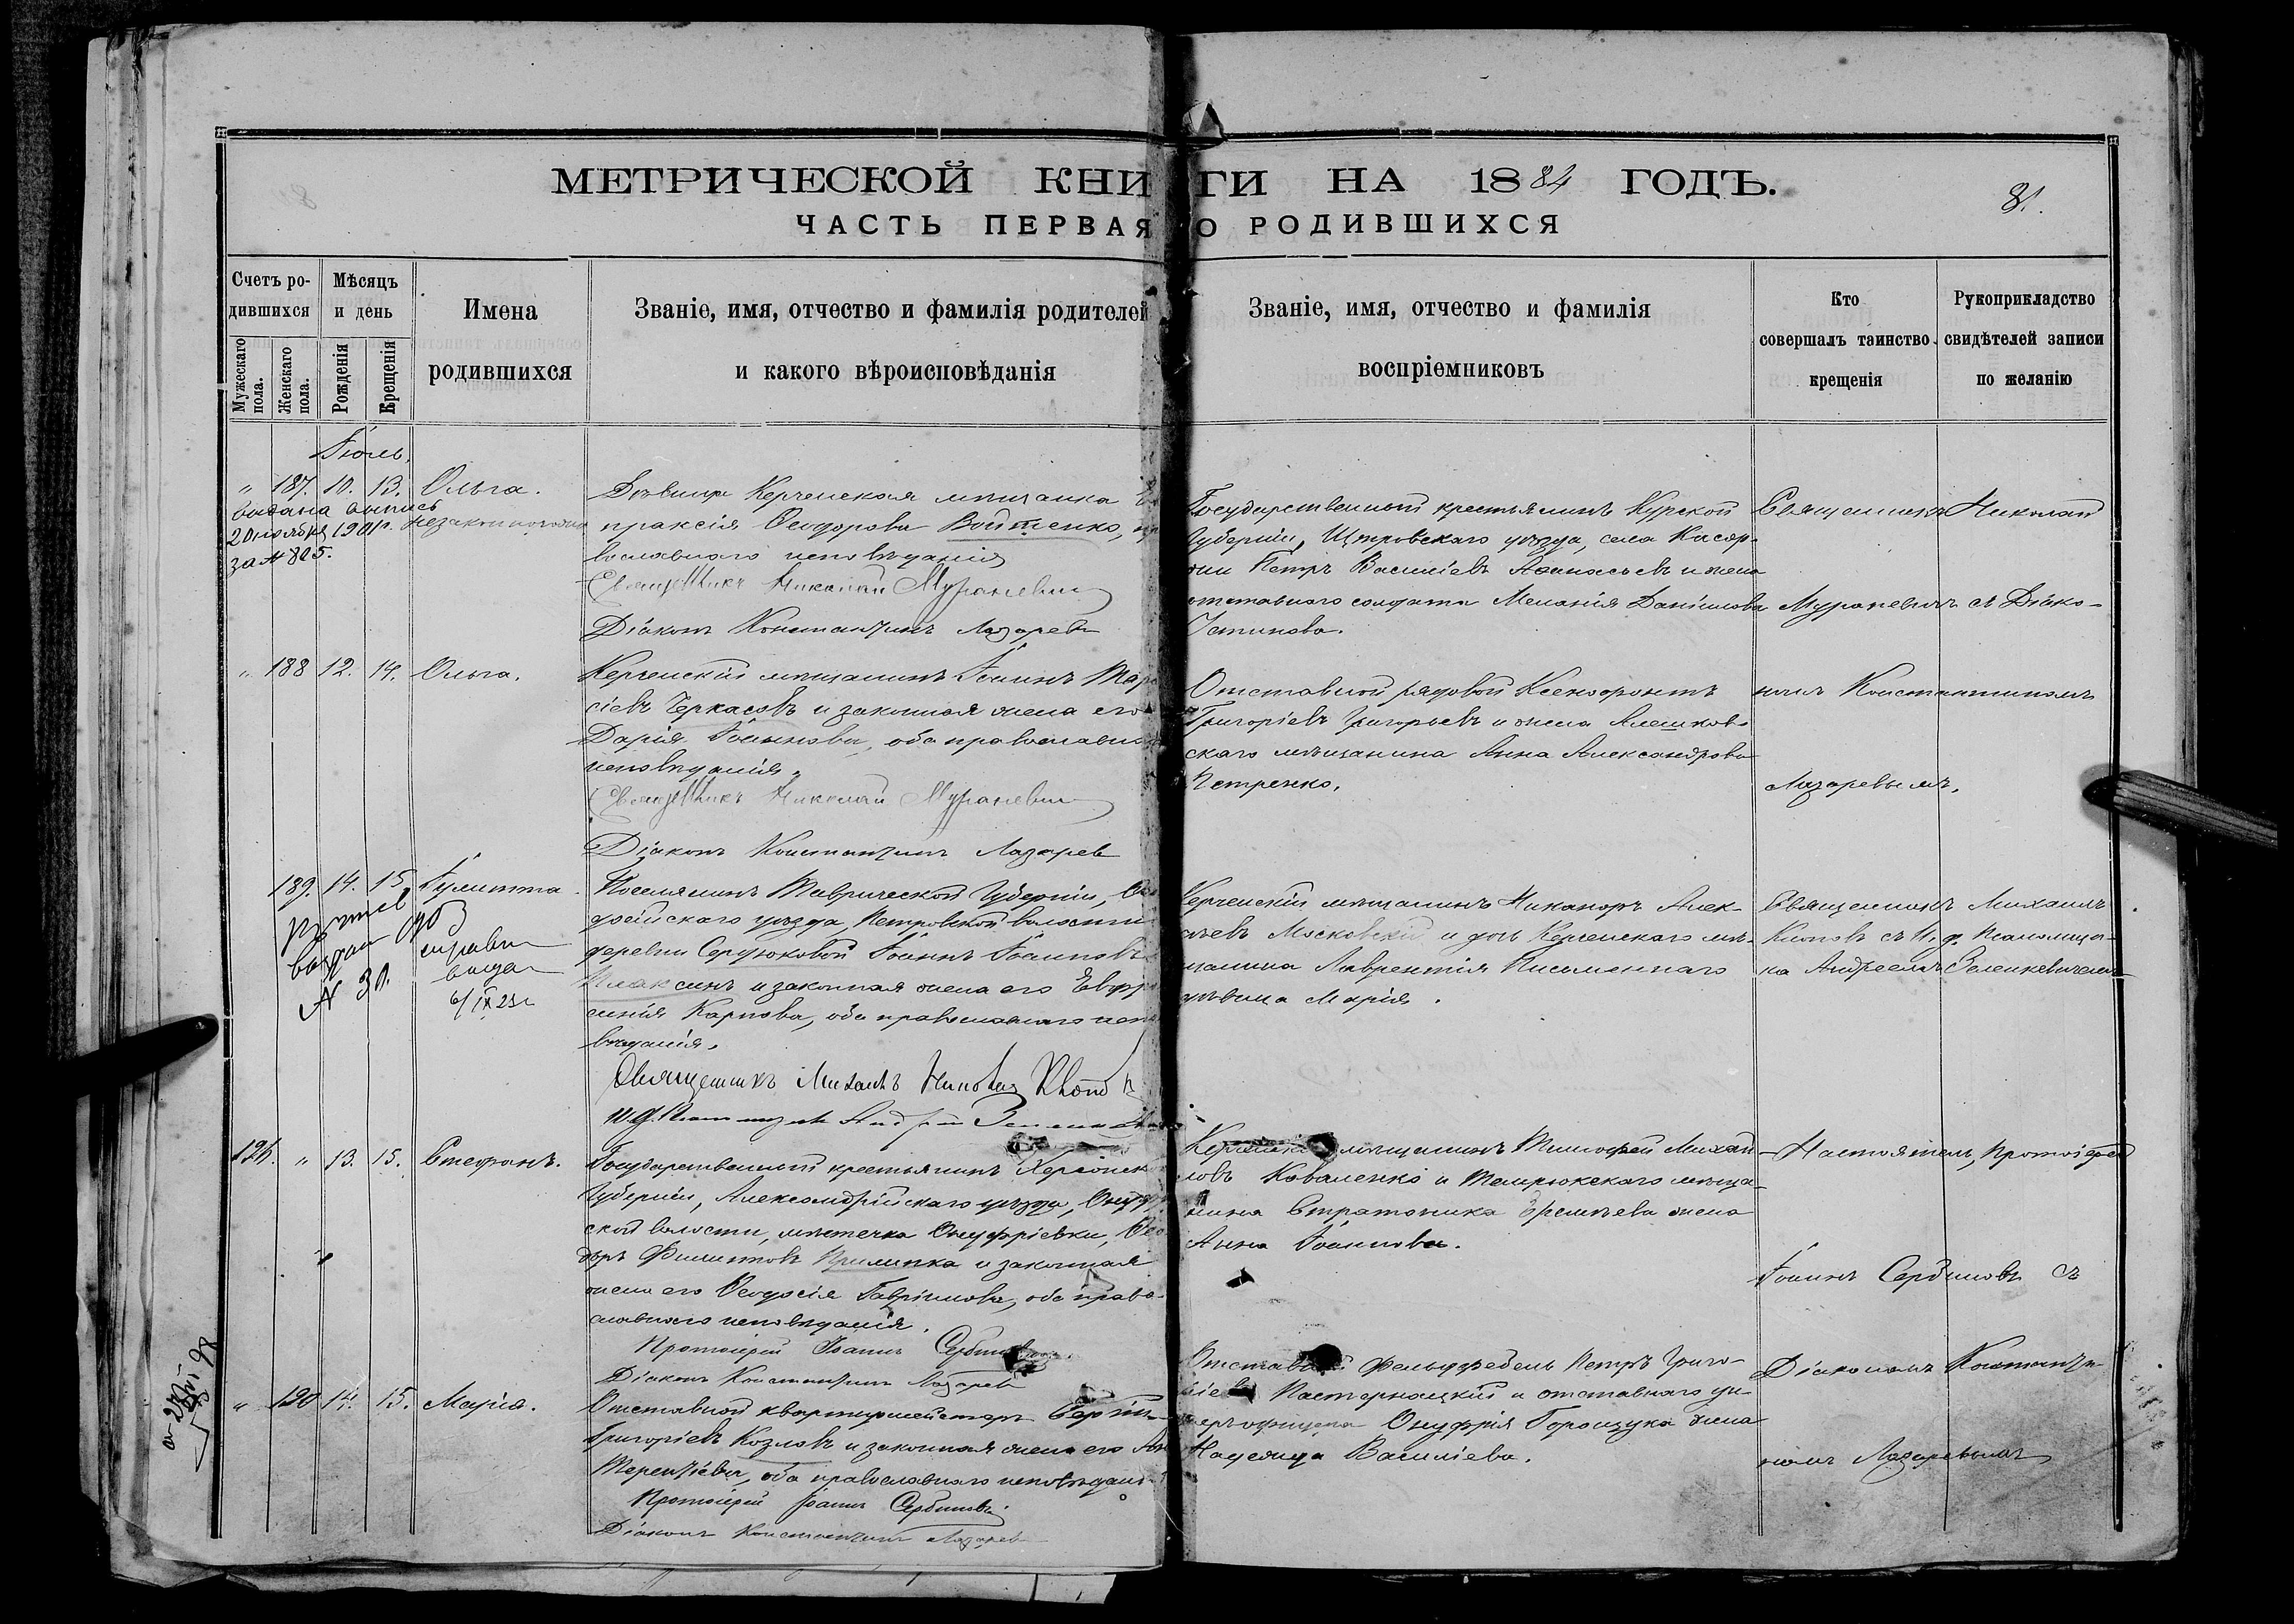 МЕТРИЧЕСКОЙ КНИГИ НА 1884 ГОДЪ.
81.
ЧАСТЬ ПЕРВАЯ О РОДИВШИХСЯ
Счетъ ро-
дившихся
Мужескаго пола.
Женскаго пола.
Мѣсяцъ
и день
Рожденія
Крещенія
Имена
родившихся
Званіе, имя, отчество и фамилія родителей
и какого вѣроисповѣданія
Званіе, имя, отчество и фамилія
воспріемниковъ
Кто
совершалъ таинство
крещенія
Рукоприкладство
свидѣтелей записи
по желанію
Іюль.
" 187. 10. 13. Ольга.
незаконнорожд
выдана выпись
20 ноября 1901 г.
за № 805.
Дѣвица Керченская мѣщанка Ев
праксія Ѳеодорова Войтенко, пра
вославнаго исповѣданія
Священникъ Николай Мураневич
Діаконъ Константинъ Лазарев
Государственный крестьянинъ Курской
Губерніи, Щигровскаго уѣзда, села Касор-
Петръ Василіевъ Аѳанасьевъ и жена
отставнаго солдата Меланія Даніилова
Устинова.
Священникъ Николай
Мураневичъ съ Діако-
номъ Константиномъ
Лазаревымъ.
" 188 12. 14. Ольга.
Керченскій мѣщанинъ Іоаннъ Тара
сіевъ Черкасовъ и законная жена его
Дарія Іоаннова, оба православнаго
исповѣданія.
Священникъ Николай Мураневич
Діаконъ Константинъ Лазарев
Отставной рядовой Ксенофонтъ
Григоріевъ Григорьевъ и жена Алешков-
скаго мѣщанина Анна Александрова
Петренко.
189. 14. 15. Іулитта.
выдан
№ 30.
справка
выдана
6/IX 23 г
Поселянинъ Таврической Губерніи, Ѳео
досійскаго уѣзда, Петровской волости
деревни Сердюковой Іоаннъ Іоанновъ
Плаксинъ и законная жена его Евфро
синія Карпова, оба православнаго испо
вѣданія.
Священникъ Михаилъ
Керченскій мѣщанинъ Никаноръ Алек-
сѣевъ Московскій и дочь Керченскаго мѣ-
щанина Лаврентія Письменнаго
дѣвица Марія.
Священникъ Михаилъ
Клоповъ съ И. д. Псаломщи-
ка Андреемъ Зелинкевичемъ
126. " 13. 15. Стефанъ.
Государственный крестьянинъ Херсонск
Губерніи, Александрійскаго уѣзда, Онуфр
ской волости, мѣстечка Онуфріевки, Ѳео
доръ Филипповъ Прилипка и законная
жена его Ѳеодосія Гавріилова, оба право-
славнаго исповѣданія.
Протоіерей Іоаннъ Сербиновъ
Діаконъ Константинъ Лазарев
Керченскій мѣщанинъ Тимофей Михаи
ловъ Коваленко и Темрюкскаго мѣща-
нина Стратоника Еремѣева жена
Анна Іоаннова.
Настоятель, протоіерей
Іоаннъ Сербиновъ съ
Діакономъ Константи-
номъ Лазаревымъ
" 190 14. 15. Марія.
Отставной квартирмейстеръ Сергій
Григоріевъ Козловъ и законная жена его Ан
Терентіева, оба православнаго исповѣдані
Протоіерей Іоаннъ Сербиновъ
Діаконъ Константинъ Лазарев
Отставной Фельдфебель Петръ Григо-
ріевъ Пастернацкій и отставнаго ун-
теръ офицера Онуфрія Горощука жена
Надежда Василіева.